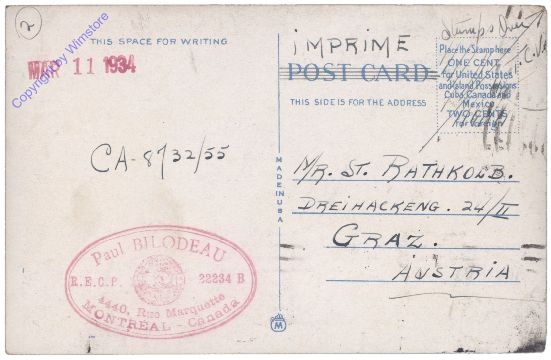 2
Copyright by Wimstore
THIS SPACE FOR WRITING
MAR 11 1934
CA-8732/55
Paul BILODEAU
R.E.C.P. 22234 B
4440, Rue Marquette
MONTRÉAL - Canada
MADE IN USA
M
IMPRIME
POST CARD
THIS SIDE IS FOR THE ADDRESS
Stamps Over
Place the Stamp here
ONE CENT
for United States
and Island Possessions
Cuba, Canada and
Mexico
TWO CENTS
for Foreign
MR. ST. RATHKOLB.
DREIHACKENG. 24/II
GRAZ.
AUSTRIA